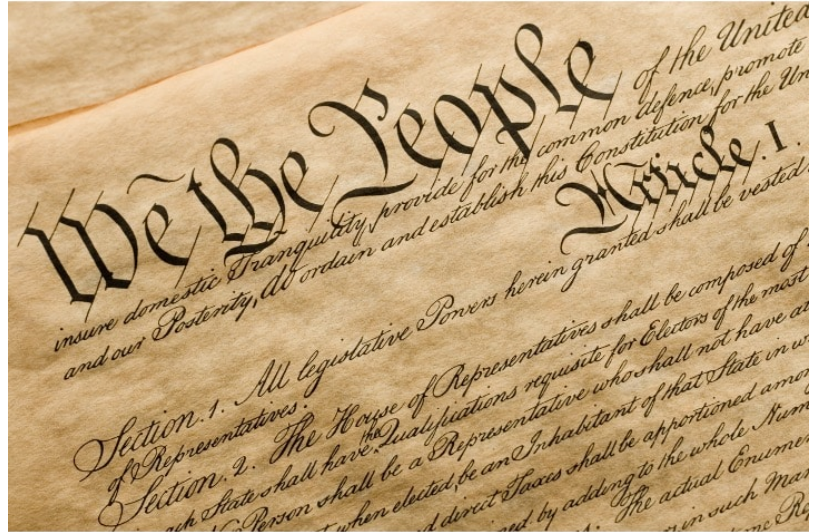 We the People of the United
insure domestic Tranquility, provide for the common defence, promote
and our Posterity, do ordain and establish this Constitution for the Un
Article. I.
Section. 1. All legislative Powers herein granted shall be vested
of Representatives.
Section. 2. The House of Representatives shall be composed of
ach State shall have the Qualifications requisite for Electors of the most
No Person shall be a Representative who shall not have at
not when elected, be an Inhabitant of that State in w
d direct Taxes shall be apportioned amon
ned by adding to the whole Num
s. The actual Enumer
in such Man